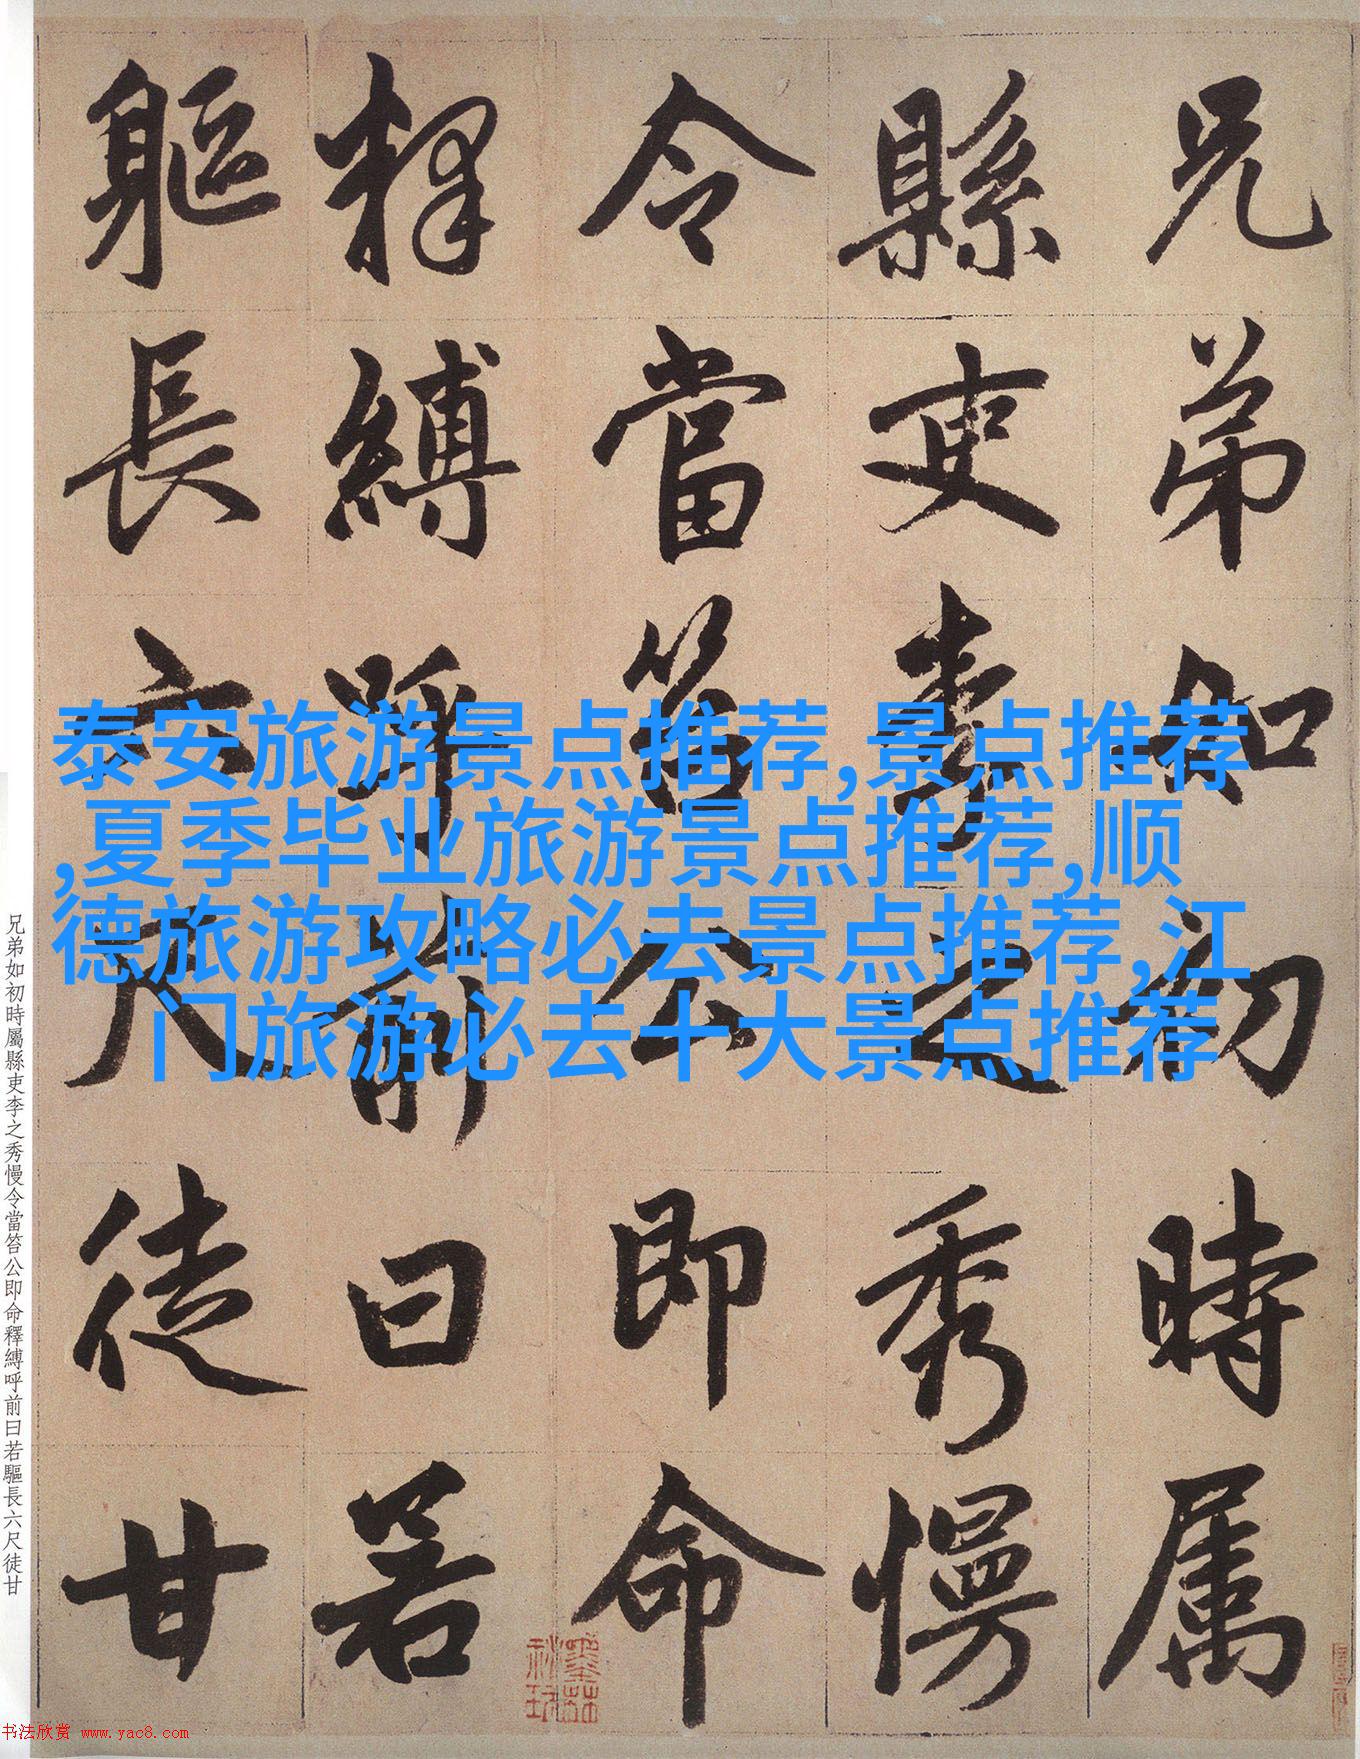 兄弟如初時属
縣吏李之秀慢
令當笞公即命
釋縛呼前曰若
軀長六尺徒甘
泰安旅游景点推荐,景点推荐
,夏季毕业旅游景点推荐,顺
德旅游攻略必去景点推荐,江
门旅游必去十大景点推荐
兄弟如初時屬縣吏李之秀慢令當笞公即命釋縛呼前曰若驅長六尺徒甘
书法欣赏 www.yac8.com